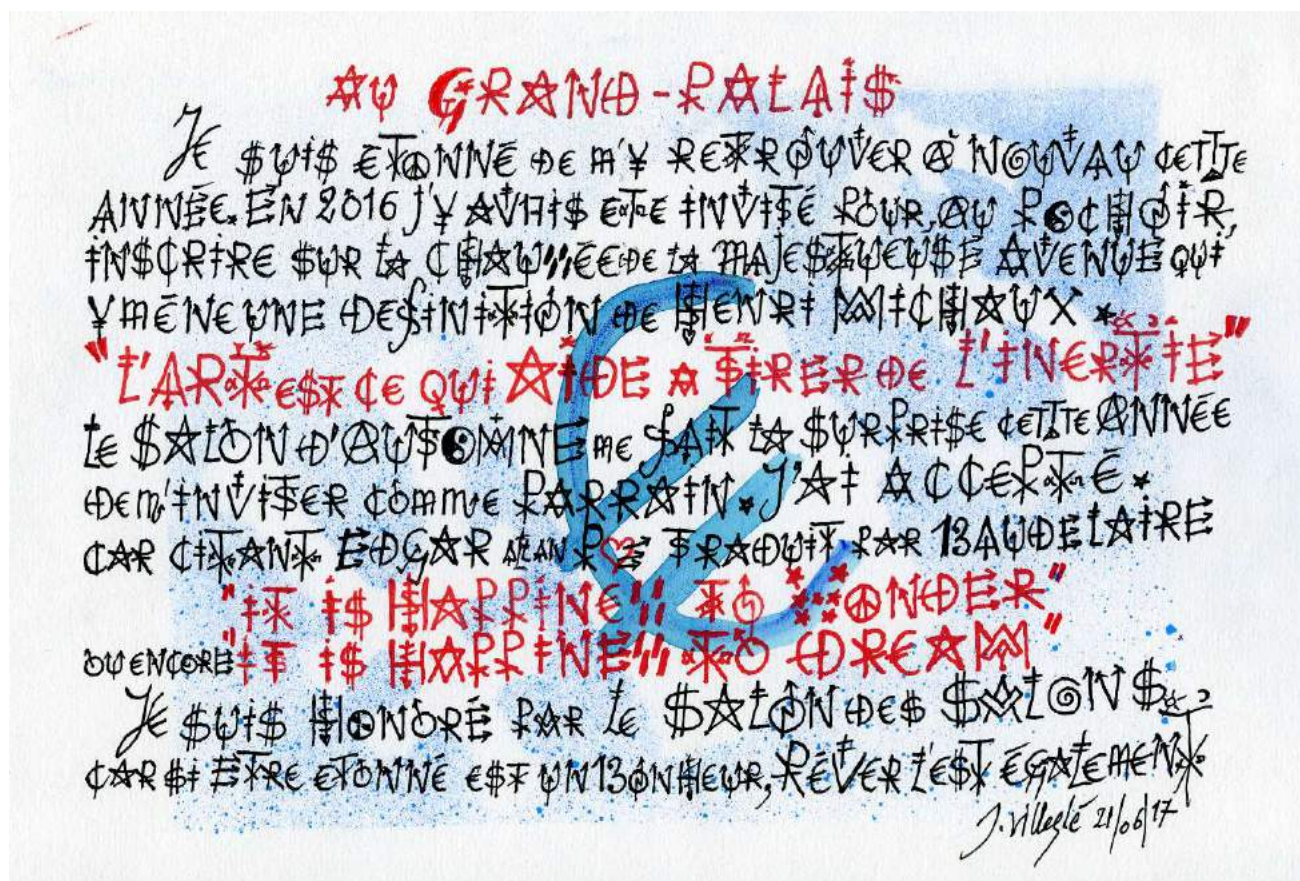 AU GRAND-PALAIS
JE SUIS ÉTONNÉ DE M'Y RETROUVER À NOUVAU CETTE
ANNÉE. EN 2016 J'Y AVAIS ÉTÉ INVITÉ POUR, AU POCHOIR,
INSCRIRE SUR LA CHAUSSÉE DE LA MAJESTUEUSE AVENUE QUI
Y MÈNE UNE DÉFINITION DE HENRI MICHAUX.
"L'ART EST CE QUI AIDE À TIRER DE L'INERTIE"
LE SALON D'AUTOMNE ME FAIT LA SURPRISE CETTE ANNÉE
DE M'INVITER COMME PARRAIN. J'AI ACCEPTÉ.
CAR CITANT EDGAR ALAN POE TRADUIT PAR BAUDELAIRE
"IT IS HAPPINESS TO WONDER"
OU ENCORE "IT IS HAPPINESS TO DREAM"
JE SUIS HONORÉ PAR LE SALON DES SALONS
CAR SI ÊTRE ÉTONNÉ EST UN BONHEUR, RÊVER L'EST ÉGALEMENT
J. Villeglé 21/06/17